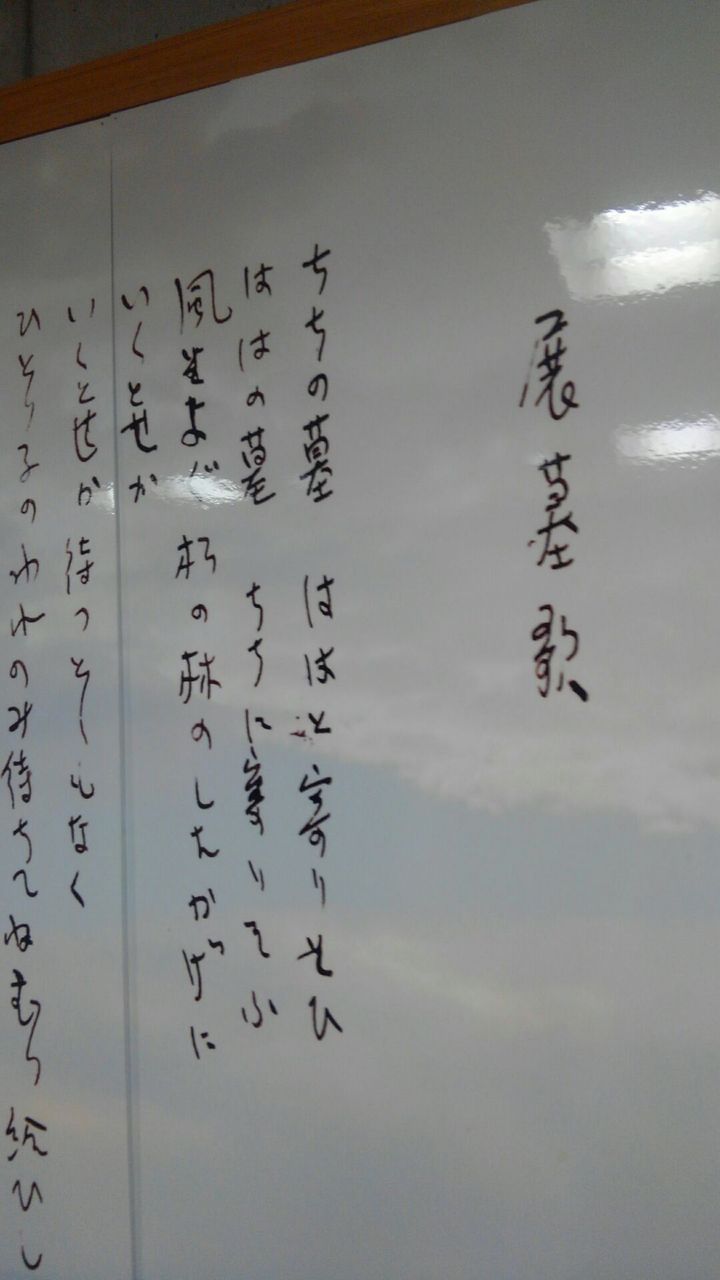 展墓歌
ちちの墓 ははと寄りそひ
ははの墓 ちちに寄りそふ
風そよぐ 杉の林のしたかげに
いくとせか
いくとせか待つとしもなく
ひとり子のわれのみ待ちてねむり給ひし